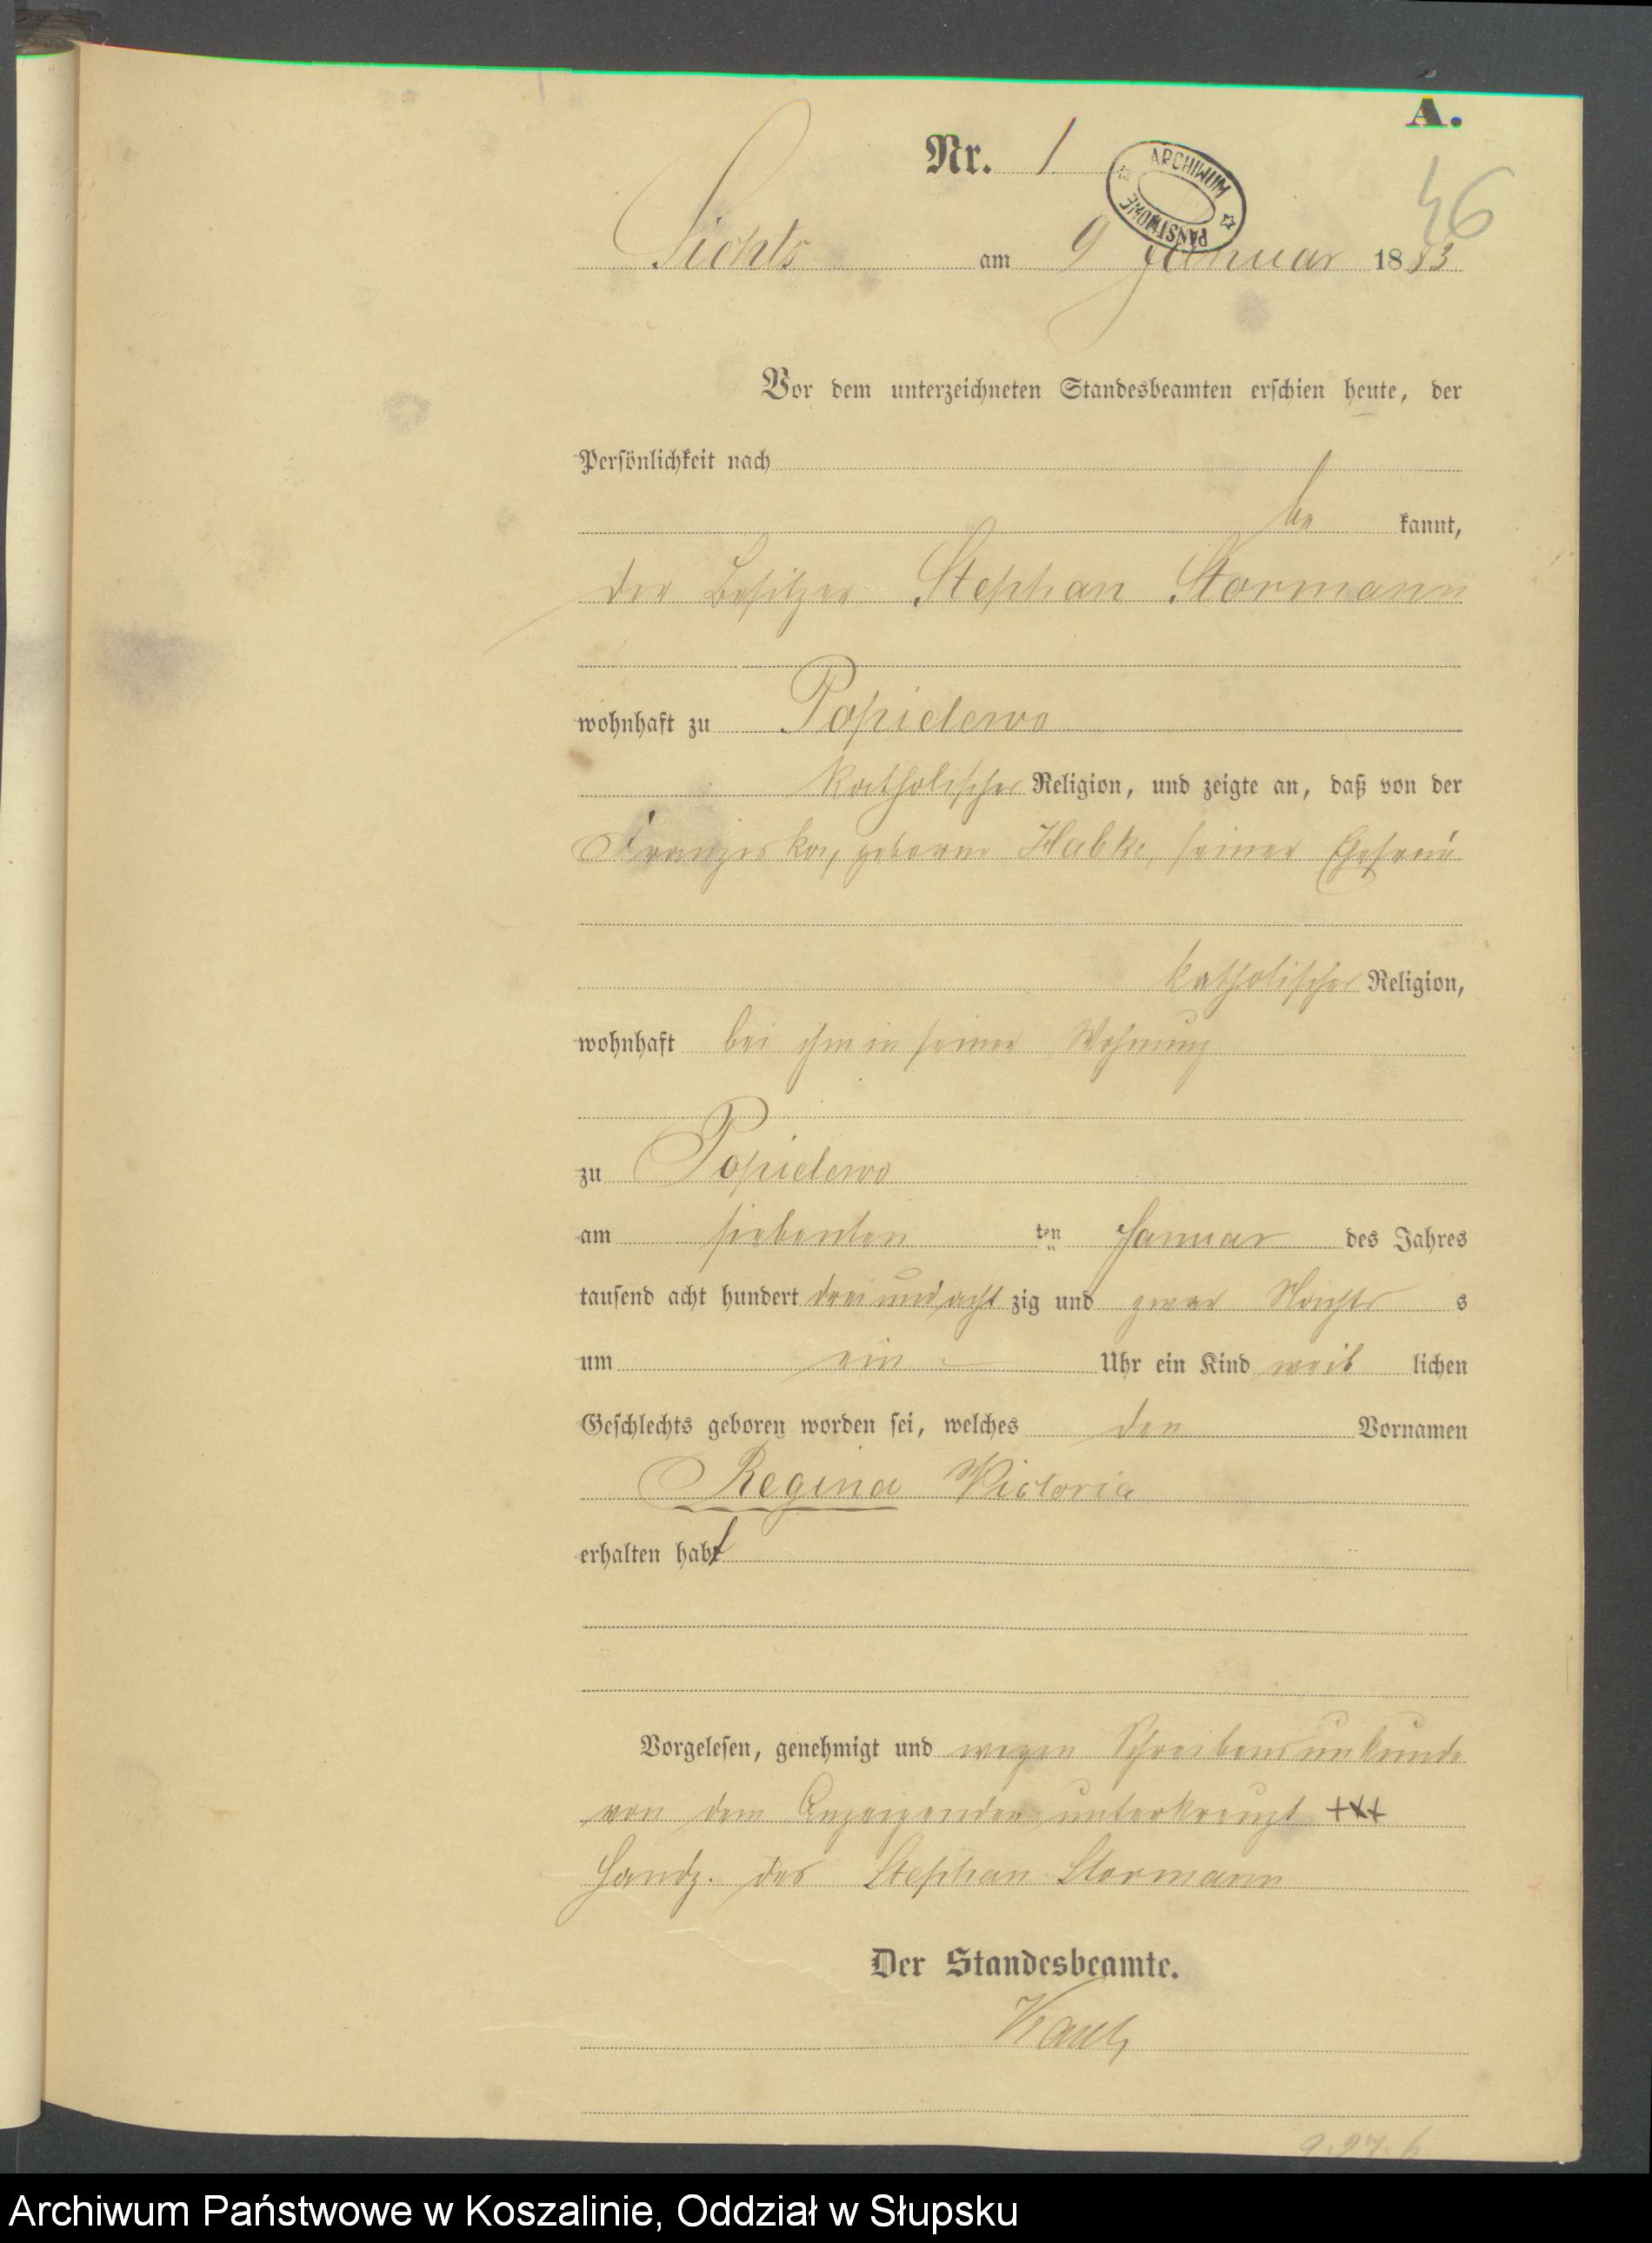 A.
Nr. 1
ARCHIWUM PAŃSTWOWE
46
Lichts am 9 Januar 1883
Vor dem unterzeichneten Standesbeamten erschien heute, der
Persönlichkeit nach
be kannt,
der Besitzer Stephan Stormann
wohnhaft zu Popielewo
katholischer Religion, und zeigte an, daß von der
Franziska, geborne Habke, seiner Ehefrau
katholischer Religion,
wohnhaft bei ihm in seiner Wohnung
zu Popielewo
am siebenten ten Januar des Jahres
tausend acht hundert drei und acht zig und zwar Nachts s
um ein Uhr ein Kind weib lichen
Geschlechts geboren worden sei, welches den Vornamen
Regina Victoria
erhalten habe
Vorgelesen, genehmigt und wegen Schreibensunkunde
von dem Anzeigenden unterkreuzt +++
Handz. des Stephan Stormann
Der Standesbeamte.
Archiwum Państwowe w Koszalinie, Oddział w Słupsku